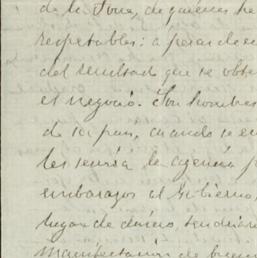 de la Torre, de quienes he
respetables: a pesar de e
del resultado que se obte
el negocio. Son hombres
de su país, cuando se en
les servía la agencia p
embarazos al Gobierno,
lugar de dinero, tendría
manifestación de buen